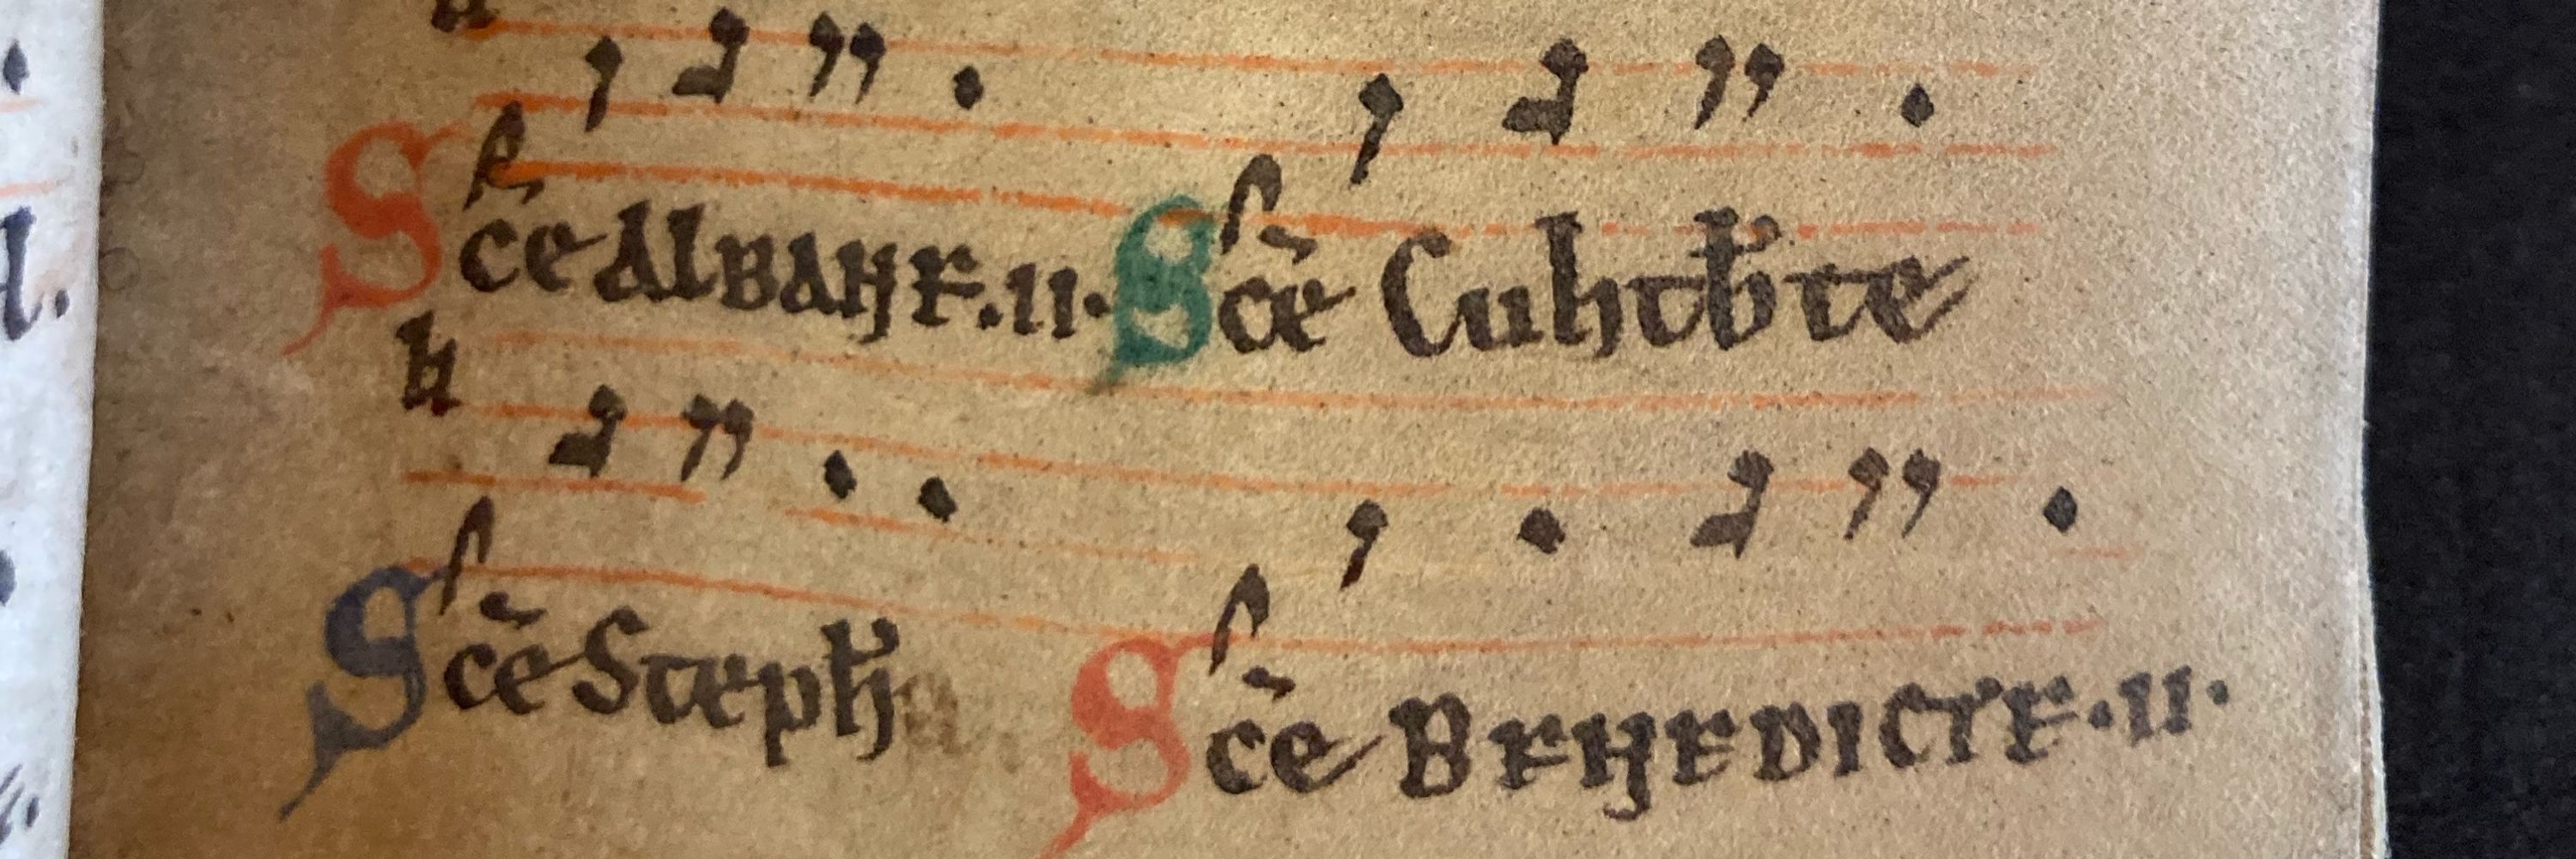 Sc̄e Albane .ii. Sc̄e Cuhtb̄te
Sc̄e Steph̄ Sc̄e Benedicte .ii.